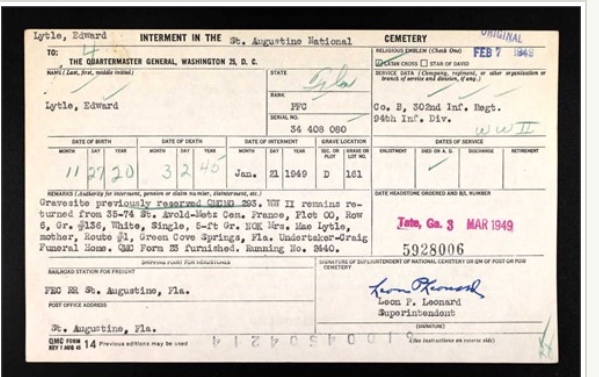 Lytle, Edward
INTERMENT IN THE St. Augustine National CEMETERY
ORIGINAL
TO:
THE QUARTERMASTER GENERAL, WASHINGTON 25, D. C.
RELIGIOUS EMBLEM (Check One)
FEB 7 1949
LATIN CROSS STAR OF DAVID
NAME (Last, first, middle initial)
STATE
SERVICE DATA (Company, regiment, or other organization or
branch of service and division, if any.)
Lytle, Edward
RANK
PFC
Co. B, 302nd Inf. Regt.
94th Inf. Div.
WW II
SERIAL NO.
34 408 080
DATE OF BIRTH
DATE OF DEATH
DATE OF INTERMENT
GRAVE LOCATION
DATES OF SERVICE
MONTH DAY YEAR
MONTH DAY YEAR
MONTH DAY YEAR
SEC. OR PLOT
GRAVE OR LOT NO.
ENLISTMENT
DIED ON A. D.
DISCHARGE
RETIREMENT
11 27 20
3 2 45
Jan. 21 1949
D
161
REMARKS (Authority for interment, pension or claim number, disinterment, etc.)
DATE HEADSTONE ORDERED AND B/L NUMBER
Gravesite previously reserved QMGMO 293. WW II remains re-
turned from 35-74 St. Avold-Metz Cem. France, Plot OO, Row
6, Gr. #136, White, Single, 5-ft Gr. NOK Mrs. Mae Lytle,
mother, Route #1, Green Cove Springs, Fla. Undertaker-Craig
Funeral Home. QMC Form 23 furnished. Running No. 2440.
Tate, Ga. 3 MAR 1949
5928006
SHIPPING POINT FOR HEADSTONE
SIGNATURE OF SUPERINTENDENT OF NATIONAL CEMETERY OR QM OF POST OR POW
CEMETERY
RAILROAD STATION FOR FREIGHT
FEC RR St. Augustine, Fla.
Leon P Leonard
Leon P. Leonard
Superintendent
POST OFFICE ADDRESS
(SIGNATURE)
St. Augustine, Fla.
QMC FORM
REV 1 AUG 46
14 Previous editions may be used
(See instructions on reverse side)